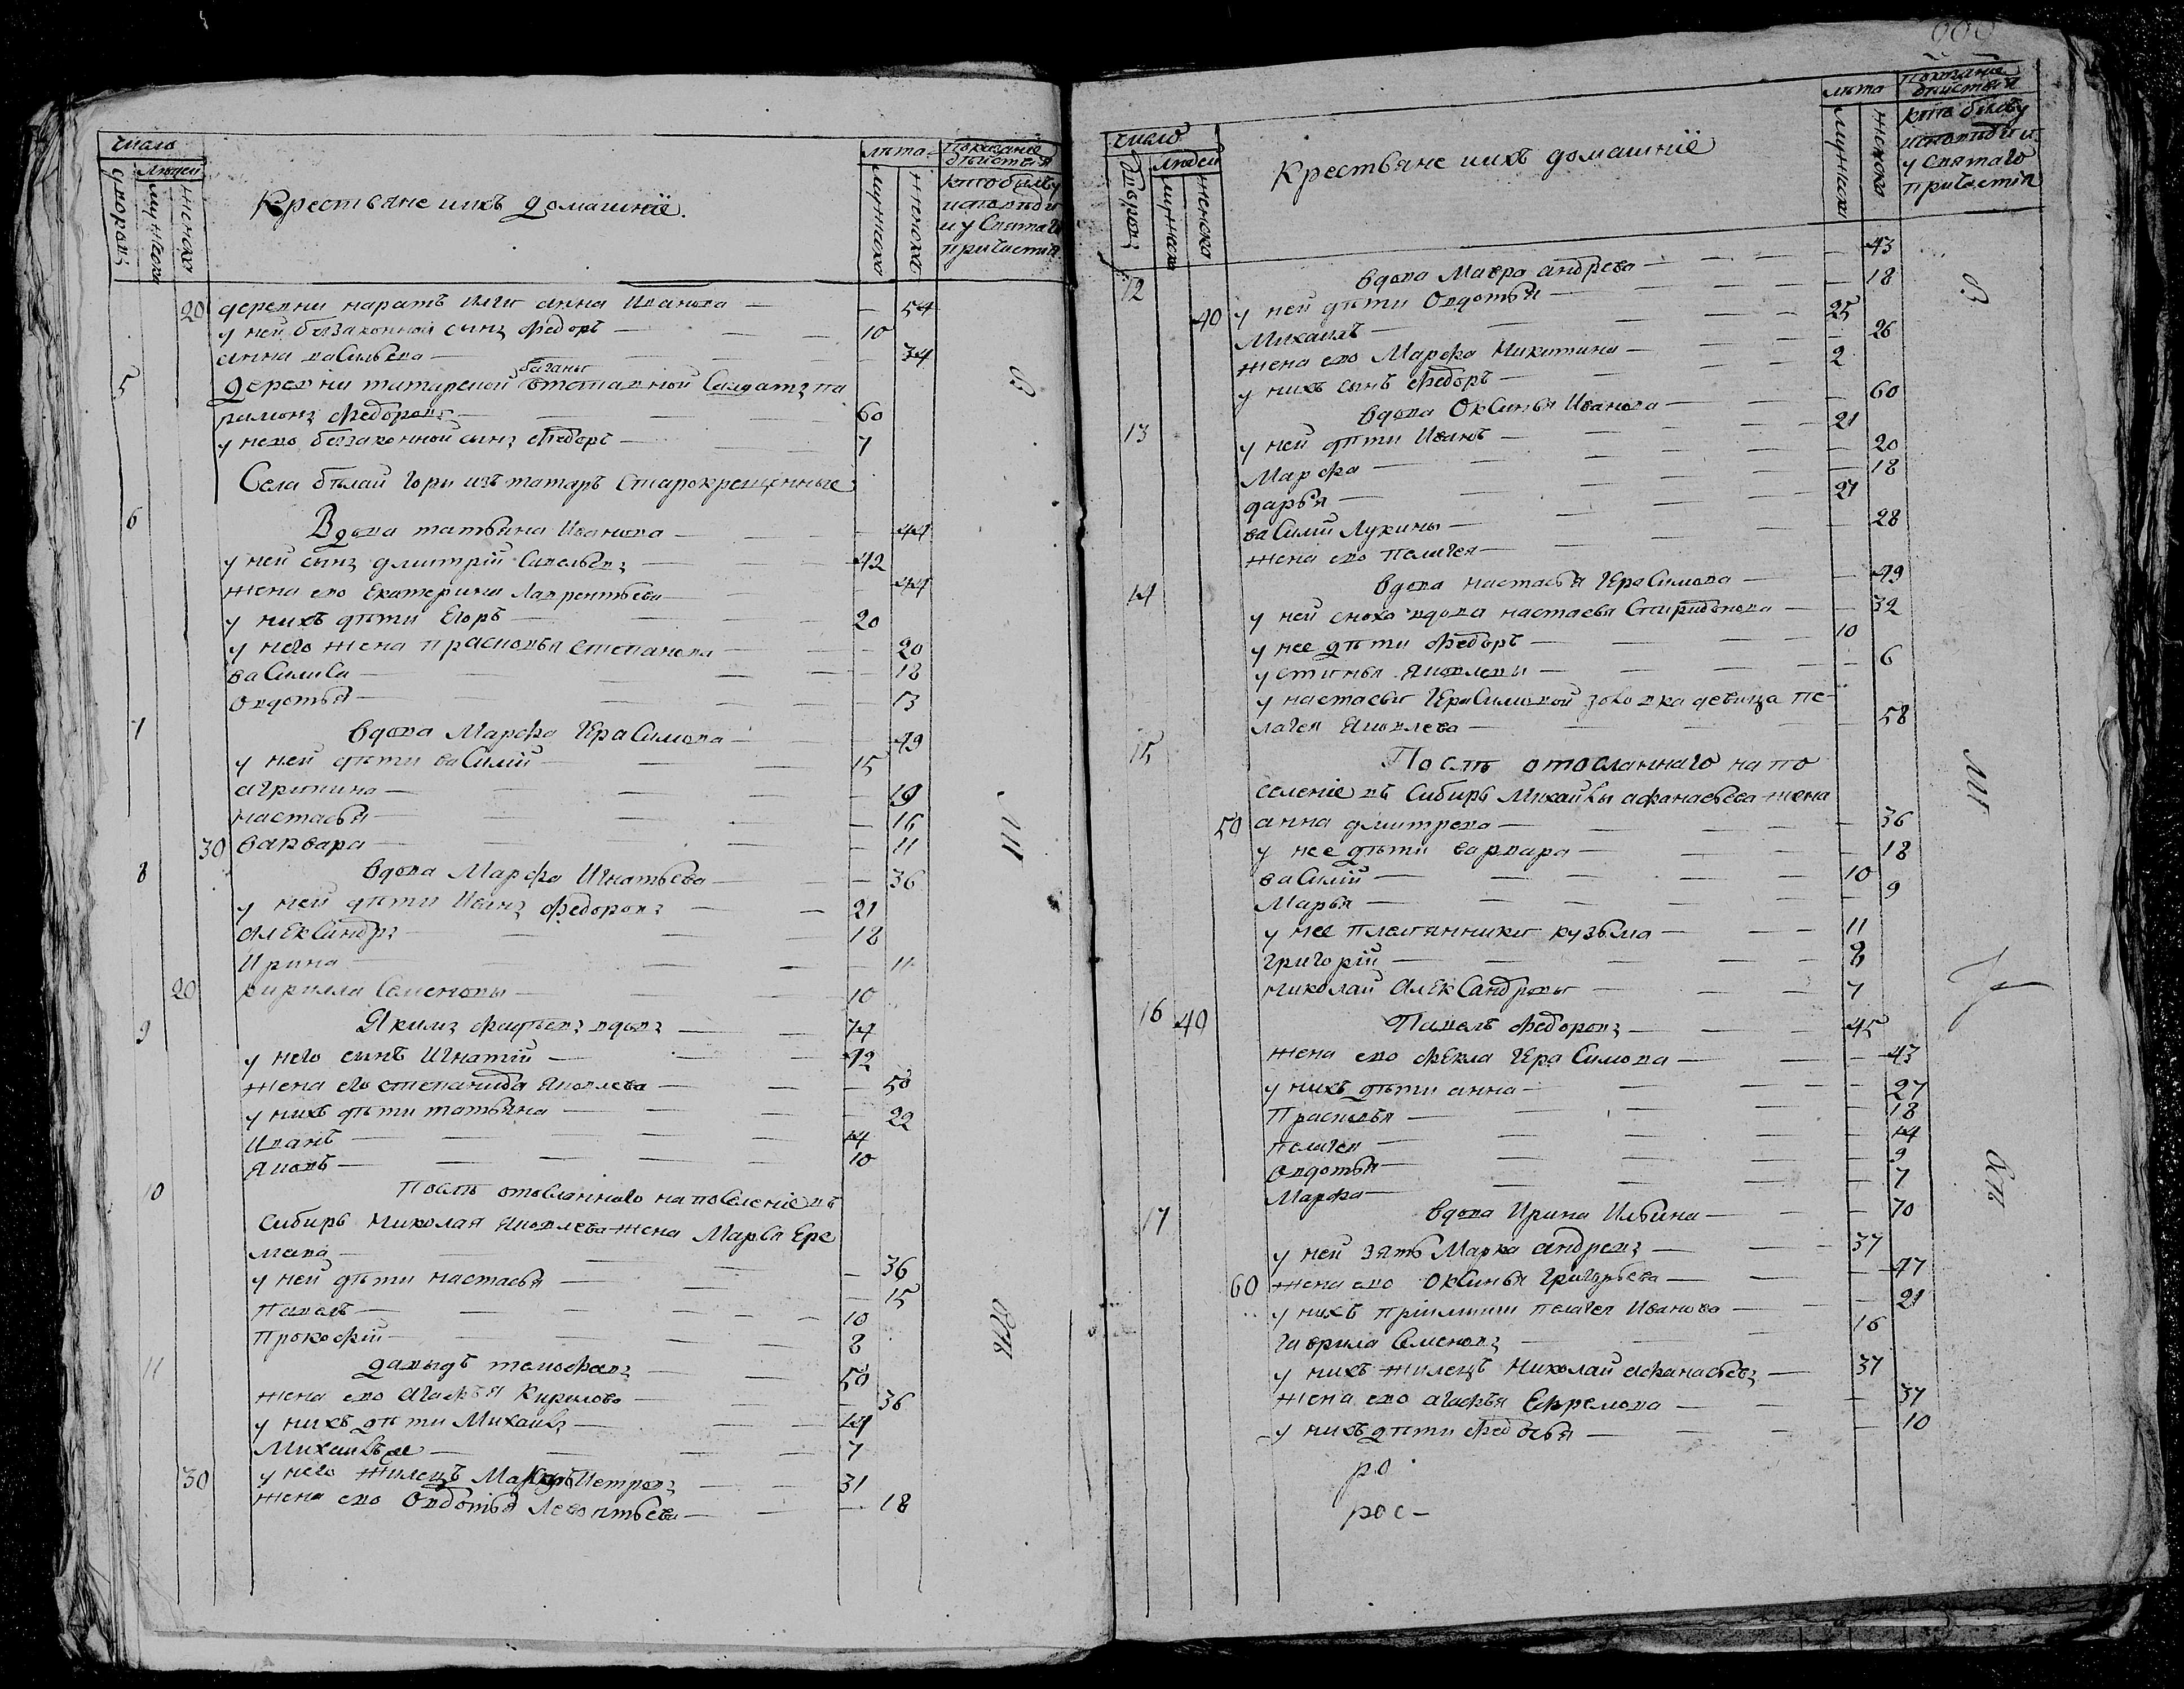 число
людей
дворовъ
мужеска
женска
Крестьяне ихъ домашнїе.
лѣта
мужеска
женска
Показанїе
дѣйствїя
кто былъ у
исповѣди
и у Святаго
причастїя
20 деревни Анна Иванова — 54
у ней беззаконной сынъ Федоръ — 10
Анна Васильева — 34
5 Деревни татарской баганы отставной Салдатъ па
римонъ Федоровъ — 60
у него беззаконной сынъ Федоръ — 7
Села бѣлой гори изъ татаръ Старокрещенные
6 Вдова татьяна Иванова — 44
у ней сынъ дмитрїй Савельевъ — 42
жена его Екатерина Лаврентьева — 44
у нихъ дѣти Егоръ — 20
у него жена прасковья степанова — 20
ваСилиСа — 18
овдотья — 13
7 вдова Марфа ГераСимова — 49
у ней дѣти ваСилїй — 15
агрипина — 19
настасья — 16
30 варвара — 11
8 вдова Марфа Игнатьева — 36
у ней дѣти Иванъ Федоровъ — 21
АлекСандръ — 18
Ирина — 11
20 кирилла Семеновы — 10
9 Якимъ Фадѣевъ вдовъ — 74
у него сынъ Игнатїй — 42
жена его степанида Яковлева — 50
у нихъ дѣти татьяна — 22
Иванъ — 14
Яковъ — 10
10 Послѣ отосланнаго на поСеленїе въ
Сибирь Николая Яковлева жена Марья Ере
меева — 36
у ней дѣти настасья — 15
Павелъ — 10
Прокофїй — 8
11 давыдъ тимофеевъ — 50
жена его агафья Кирилова — 36
у нихъ дѣти Михаилъ — 14
Михаилъ же — 7
30 у него жилецъ Макаръ Петровъ — 31
жена его Овдотья Леонтьева — 18
число
дворовъ
людей
мужеска
женска
Крестьяне ихъ домашнїе
лѣта
мужеска
женска
Показанїе
дѣйствїя
кто былъ у
исповѣди и
у Святаго
причастїя
12 вдова Мавра андреева — 43
40 у ней дѣти Овдотья — 18
Михаилъ — 25
жена его Марфа Никитина — 26
у нихъ сынъ Федоръ — 2
13 вдова ОкСинья Иванова — 60
у ней дѣти Иванъ — 21
Марфа — 20
дарья — 18
ваСилїй Лукины — 21
жена его пелагея — 28
14 вдова настасья ГераСимова — 49
у ней сноха вдова настасья Спиридонова — 32
у нее дѣти Федоръ — 10
устинья Яковлевы — 6
у настасьи ГераСимовой золовка девица пе-
лагея Яковлева — 58
15 Послѣ отосланнаго на по
селенїе въ Сибирь Михайлы афанасьева жена
50 анна дмитрева — 36
у нее дѣти варвара — 18
ваСилїй — 10
Марья — 9
у нее племянники кузьма — 11
григорїй — 8
николай АлекСандровы — 7
16 40 Павелъ Федоровъ — 45
жена его Фекла ГераСимова — 43
у нихъ дѣти анна — 27
Прасковья — 18
пелагея — 14
Овдотья — 9
Марфа — 7
17 вдова Ирина Ильина — 70
у ней зять Марка андреевъ — 37
60 жена его ОкСинья Григорьева — 47
у нихъ прїимыши пелагея Иванова — 21
гаврила Семеновъ — 16
у нихъ жилецъ Николай афанасьевъ — 37
жена его агафья Ефремова — 37
у нихъ дѣти Федосья — 10
ро
рос-